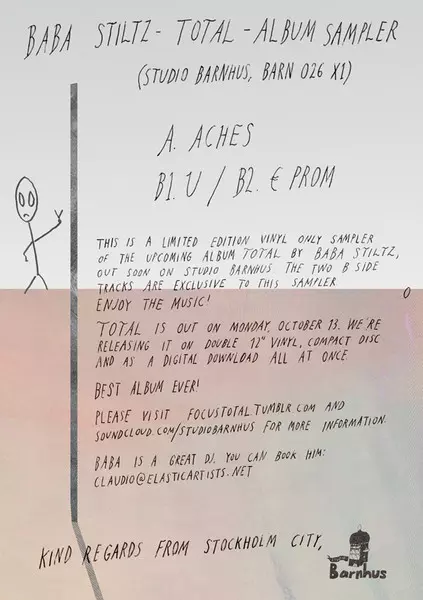 BABA STILTZ - TOTAL - ALBUM SAMPLER
(STUDIO BARNHUS, BARN 026 X1)
A. ACHES
B1. U / B2. € PROM
THIS IS A LIMITED EDITION VINYL ONLY SAMPLER
OF THE UPCOMING ALBUM TOTAL BY BABA STILTZ,
OUT SOON ON STUDIO BARNHUS. THE TWO B SIDE
TRACKS ARE EXCLUSIVE TO THIS SAMPLER.
ENJOY THE MUSIC!
TOTAL IS OUT ON MONDAY, OCTOBER 13. WE'RE
RELEASING IT ON DOUBLE 12" VINYL, COMPACT DISC
AND AS A DIGITAL DOWNLOAD ALL AT ONCE
BEST ALBUM EVER!
PLEASE VISIT FOCUSTOTAL.TUMBLR.COM AND
SOUNDCLOUD.COM/STUDIOBARNHUS FOR MORE INFORMATION.
BABA IS A GREAT DJ. YOU CAN BOOK HIM:
CLAUDIO@ELASTICARTISTS.NET
KIND REGARDS FROM STOCKHOLM CITY,
Barnhus